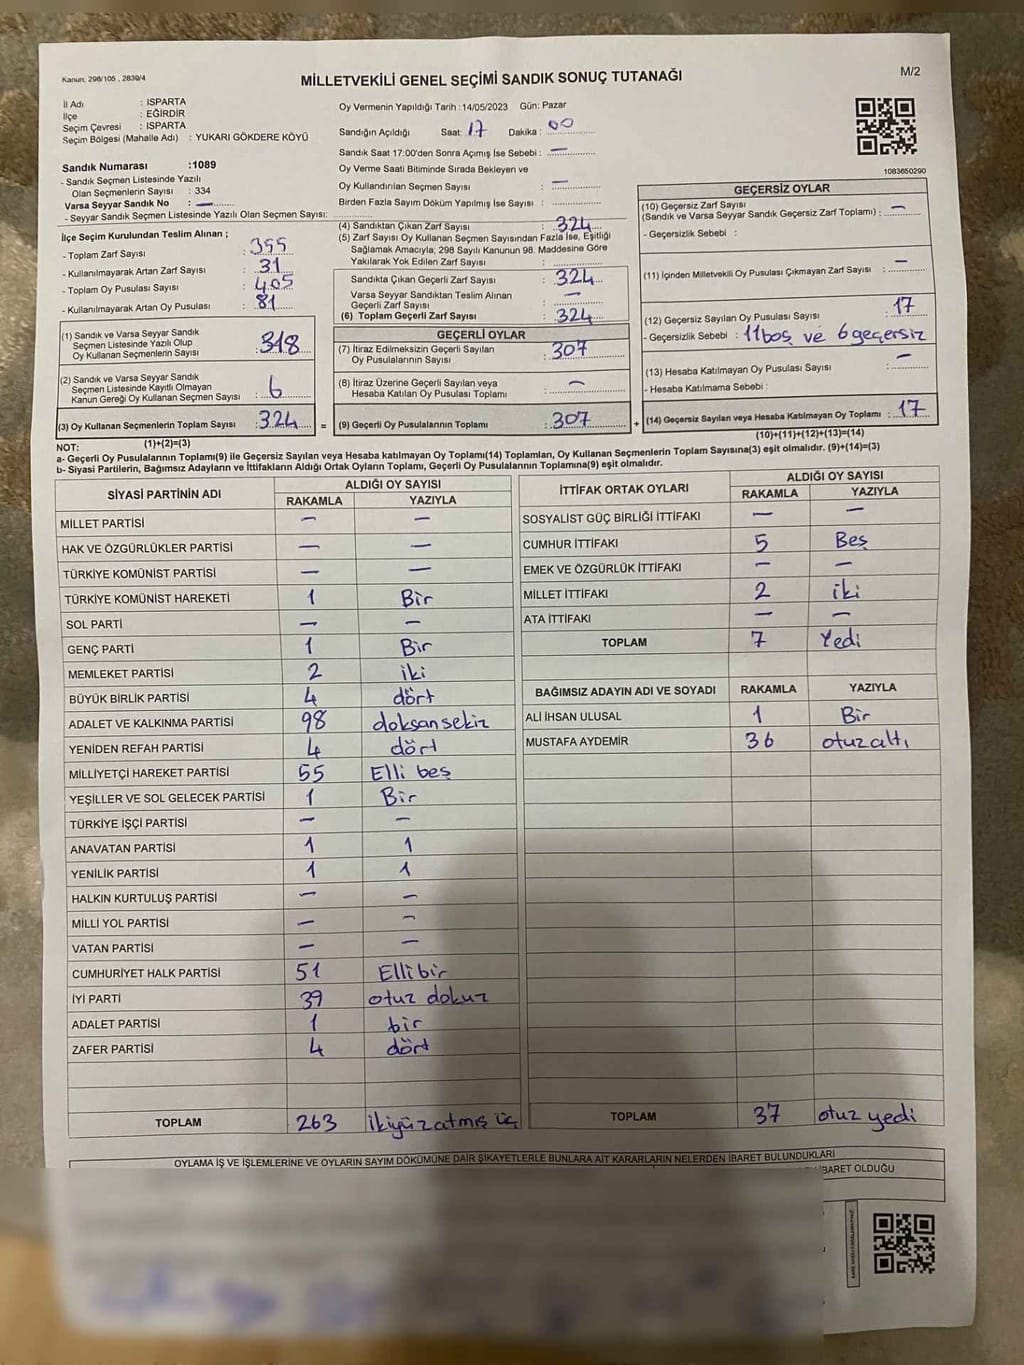 Kanun: 298/105 , 2839/4
MİLLETVEKİLİ GENEL SEÇİMİ SANDIK SONUÇ TUTANAĞI
M/2
İl Adı : ISPARTA
İlçe : EĞİRDİR
Seçim Çevresi : ISPARTA
Seçim Bölgesi (Mahalle Adı) : YUKARI GÖKDERE KÖYÜ
Oy Vermenin Yapıldığı Tarih : 14/05/2023 Gün: Pazar
Sandığın Açıldığı Saat: 17 Dakika : 00
Sandık Saat 17:00'den Sonra Açımış İse Sebebi : —
Oy Verme Saati Bitiminde Sırada Bekleyen ve
Oy Kullandırılan Seçmen Sayısı : —
Birden Fazla Sayım Döküm Yapılmış İse Sayısı :
1083650290
Sandık Numarası :1089
- Sandık Seçmen Listesinde Yazılı
Olan Seçmenlerin Sayısı : 334
Varsa Seyyar Sandık No : —
- Seyyar Sandık Seçmen Listesinde Yazılı Olan Seçmen Sayısı:
İlçe Seçim Kurulundan Teslim Alınan ;
- Toplam Zarf Sayısı : 355
- Kullanılmayarak Artan Zarf Sayısı : 31
- Toplam Oy Pusulası Sayısı : 405
- Kullanılmayarak Artan Oy Pusulası : 81
(1) Sandık ve Varsa Seyyar Sandık
Seçmen Listesinde Yazılı Olup
Oy Kullanan Seçmenlerin Sayısı : 318
(2) Sandık ve Varsa Seyyar Sandık
Seçmen Listesinde Kayıtlı Olmayan
Kanun Gereği Oy Kullanan Seçmen Sayısı : 6
(3) Oy Kullanan Seçmenlerin Toplam Sayısı : 324 =
(1)+(2)=(3)
(4) Sandıktan Çıkan Zarf Sayısı : 324
(5) Zarf Sayısı Oy Kullanan Seçmen Sayısından Fazla İse, Eşitliği
Sağlamak Amacıyla; 298 Sayılı Kanunun 98. Maddesine Göre
Yakılarak Yok Edilen Zarf Sayısı :
Sandıkta Çıkan Geçerli Zarf Sayısı : 324
Varsa Seyyar Sandıktan Teslim Alınan
Geçerli Zarf Sayısı : —
(6) Toplam Geçerli Zarf Sayısı : 324
GEÇERLİ OYLAR
(7) İtiraz Edilmeksizin Geçerli Sayılan
Oy Pusulalarının Sayısı : 307
(8) İtiraz Üzerine Geçerli Sayılan veya
Hesaba Katılan Oy Pusulası Toplamı : —
(9) Geçerli Oy Pusulalarının Toplamı : 307 +
GEÇERSİZ OYLAR
(10) Geçersiz Zarf Sayısı
(Sandık ve Varsa Seyyar Sandık Geçersiz Zarf Toplamı) : —
- Geçersizlik Sebebi :
(11) İçinden Milletvekili Oy Pusulası Çıkmayan Zarf Sayısı : —
(12) Geçersiz Sayılan Oy Pusulası Sayısı : 17
- Geçersizlik Sebebi : 11 boş ve 6 geçersiz
(13) Hesaba Katılmayan Oy Pusulası Sayısı : —
- Hesaba Katılmama Sebebi :
(14) Geçersiz Sayılan veya Hesaba Katılmayan Oy Toplamı : 17
(10)+(11)+(12)+(13)=(14)
NOT:
a- Geçerli Oy Pusulasının Toplamı(9) ile Geçersiz Sayılan veya Hesaba Katılmayan Oy Toplamı(14) Toplamları, Oy Kullanan Seçmenlerin Toplam Sayısına(3) eşit olmalıdır. (9)+(14)=(3)
b- Siyasi Partilerin, Bağımsız Adayların ve İttifakların Aldığı Ortak Oyların Toplamı, Geçerli Oy Pusulalarının Toplamına(9) eşit olmalıdır.
SİYASİ PARTİNİN ADI ALDIĞI OY SAYISI
RAKAMLA YAZIYLA
MİLLET PARTİSİ — —
HAK VE ÖZGÜRLÜKLER PARTİSİ — —
TÜRKİYE KOMÜNİST PARTİSİ — —
TÜRKİYE KOMÜNİST HAREKETİ 1 Bir
SOL PARTİ — —
GENÇ PARTİ 1 Bir
MEMLEKET PARTİSİ 2 iki
BÜYÜK BİRLİK PARTİSİ 4 dört
ADALET VE KALKINMA PARTİSİ 98 doksan sekiz
YENİDEN REFAH PARTİSİ 4 dört
MİLLİYETÇİ HAREKET PARTİSİ 55 Elli beş
YEŞİLLER VE SOL GELECEK PARTİSİ 1 Bir
TÜRKİYE İŞÇİ PARTİSİ — —
ANAVATAN PARTİSİ 1 1
YENİLİK PARTİSİ 1 1
HALKIN KURTULUŞ PARTİSİ — —
MİLLİ YOL PARTİSİ — —
VATAN PARTİSİ — —
CUMHURİYET HALK PARTİSİ 51 Elli bir
İYİ PARTİ 39 otuz dokuz
ADALET PARTİSİ 1 bir
ZAFER PARTİSİ 4 dört
TOPLAM 263 ikiyüz atmış üç
İTTİFAK ORTAK OYLARI ALDIĞI OY SAYISI
RAKAMLA YAZIYLA
SOSYALİST GÜÇ BİRLİĞİ İTTİFAKI — —
CUMHUR İTTİFAKI 5 Beş
EMEK VE ÖZGÜRLÜK İTTİFAKI — —
MİLLET İTTİFAKI 2 iki
ATA İTTİFAKI — —
TOPLAM 7 Yedi
BAĞIMSIZ ADAYIN ADI VE SOYADI RAKAMLA YAZIYLA
ALİ İHSAN ULUSAL 1 Bir
MUSTAFA AYDEMİR 36 otuz altı
TOPLAM 37 otuz yedi
OYLAMA İŞ VE İŞLEMLERİNE VE OYLARIN SAYIM DÖKÜMÜNE DAİR ŞİKAYETLERLE BUNLARA AİT KARARLARIN NELERDEN İBARET BULUNDUKLARI
İBARET OLDUĞU